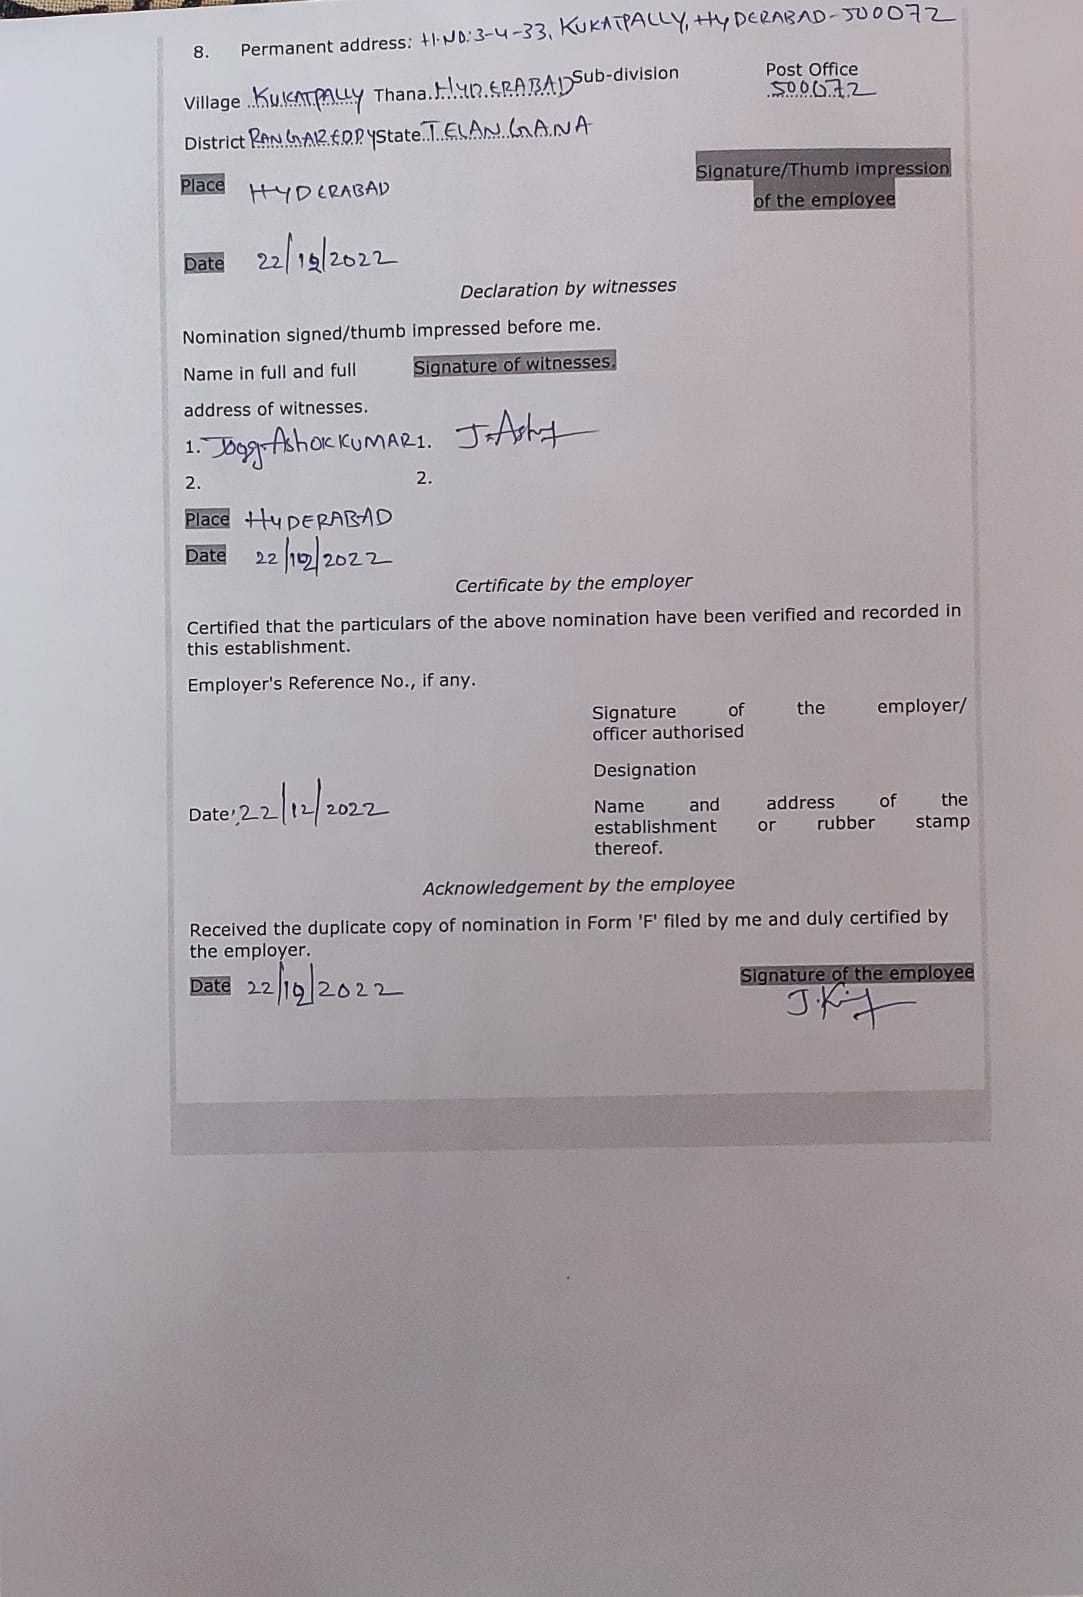 8. Permanent address: H.NO:3-4-33, KUKATPALLY, HYDERABAD-500072
Village ..KUKATPALLY Thana..HYDERABAD Sub-division
Post Office
500072
District RANGAREDDY State..TELANGANA
Place HYDERABAD
Signature/Thumb impression
of the employee
Date 22/12/2022
Declaration by witnesses
Nomination signed/thumb impressed before me.
Name in full and full Signature of witnesses.
address of witnesses.
1. Jogg ASHOK KUMAR 1. J.Ashok
2. 2.
Place HYDERABAD
Date 22/12/2022
Certificate by the employer
Certified that the particulars of the above nomination have been verified and recorded in
this establishment.
Employer's Reference No., if any.
Signature of the employer/
officer authorised
Designation
Date: 22/12/2022
Name and address of the
establishment or rubber stamp
thereof.
Acknowledgement by the employee
Received the duplicate copy of nomination in Form 'F' filed by me and duly certified by
the employer.
Date 22/12/2022
Signature of the employee